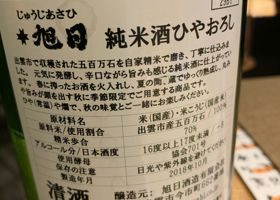 じゅうじあさひ
旭日 純米酒ひやおろし
出雲市で収穫された五百万石を自家精米で磨き、丁寧に仕込みま
した。元気に発酵し、辛口ながら旨みも感じる純米酒に仕上がって
います。春に搾ったお酒を火入れし、夏の間、蔵でゆっくり熟成し、丸み
や旨みが出た秋に季節限定でご用意する商品です。
ひや(常温)や燗で、秋の味覚とご一緒にお楽しみください。
原材料名 米(国産)・米こうじ(国産米)
原料米/使用割合 出雲市産五百万石/100%
精米歩合 70%
アルコール分/日本酒度 16度以上17度未満
使用酵母 協会701号
保存の注意 日光や紫外線を避けてください
製造年月 2018年10月
清酒 醸造元: 旭日酒造有限会社
出雲市今市町